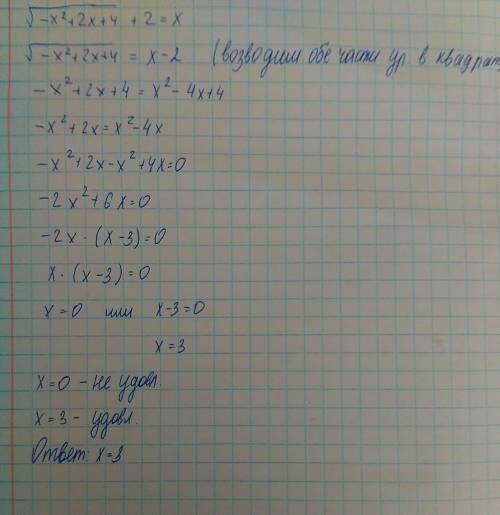 √-x²+2x+4 + 2 = x
√-x²+2x+4 = x-2 (возводим обе части ур в квадрат
-x²+2x+4 = x²-4x+4
-x²+2x = x²-4x
-x²+2x-x²+4x=0
-2x²+6x=0
-2x·(x-3)=0
x·(x-3)=0
x=0 или x-3=0
x=3
x=0 - не удовл.
x=3 - удовл.
Ответ: x=3